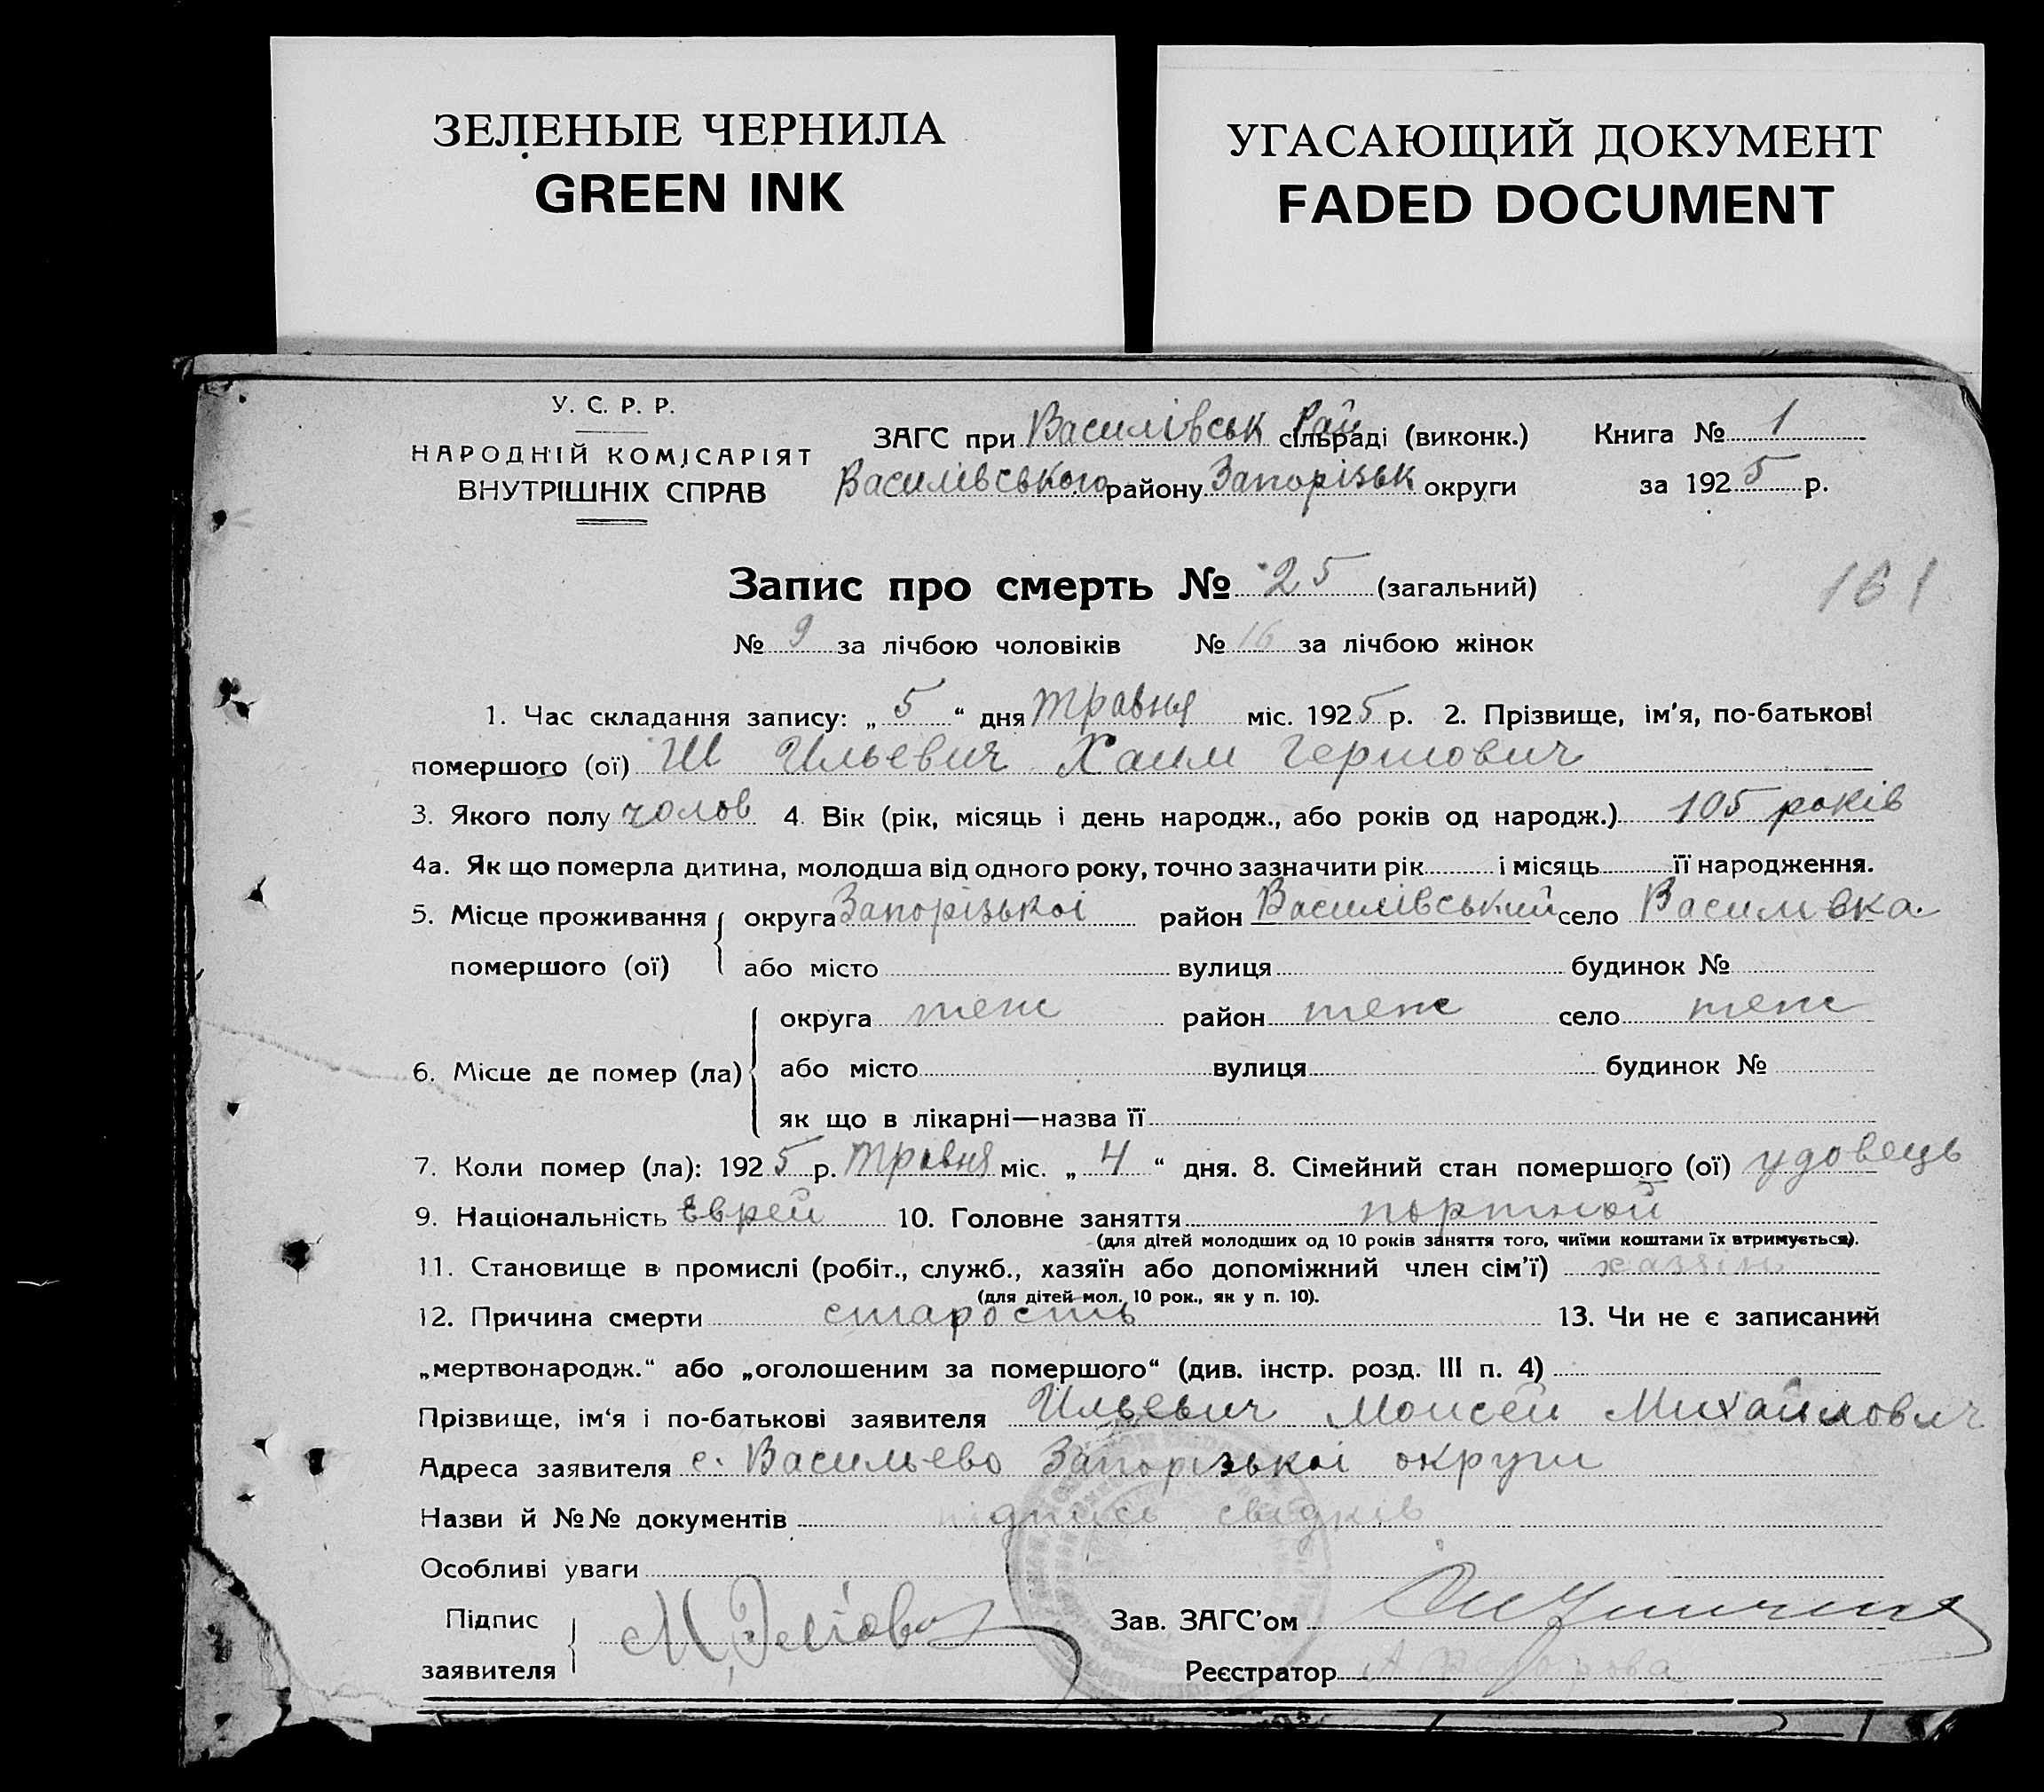 ЗЕЛЕНЫЕ ЧЕРНИЛА
GREEN INK
УГАСАЮЩИЙ ДОКУМЕНТ
FADED DOCUMENT
У. С. Р. Р.
НАРОДНІЙ КОМІСАРІЯТ
ВНУТРІШНІХ СПРАВ
ЗАГС при Василівськ Рай сільраді (виконк.)
Василівського району Запорізьк округи
Книга № 1
за 1925 р.
Запис про смерть № 25 (загальний)
161
№ 9 за лічбою чоловіків № 16 за лічбою жінок
1. Час складання запису: „5“ дня травня міс. 1925 р. 2. Прізвище, ім'я, по-батькові
помершого (ої) Ш Ильевич Хаим Гершович
3. Якого полу чолов 4. Вік (рік, місяць і день народж., або років од народж.) 105 років
4а. Як що померла дитина, молодша від одного року, точно зазначити рік і місяць її народження.
5. Місце проживання округа Запорізькоі район Василівський село Василивка
помершого (ої) або місто вулиця будинок №
округа теж район теж село теж
6. Місце де помер (ла) або місто вулиця будинок №
як що в лікарні—назва її
7. Коли помер (ла): 1925 р. травня міс. „4“ дня. 8. Сімейний стан помершого (ої) удовець
9. Національність Еврей 10. Головне заняття портной
(для дітей молодших од 10 років заняття того, чиїми коштами їх втримується).
11. Становище в промислі (робіт., служб., хазяїн або допоміжний член сім'ї) хазяін
(для дітей мол. 10 рок., як у п. 10).
12. Причина смерти старость 13. Чи не є записаний
„мертвонародж.“ або „оголошеним за помершого“ (див. інстр. розд. III п. 4)
Прізвище, ім'я і по-батькові заявителя Ильевич Моисей Михайлович
Адреса заявителя с. Васильево Запорізькоі округи
Назви й №№ документів підпись свідків
Особливі уваги
Підпис
заявителя
Зав. ЗАГС'ом
Реєстратор